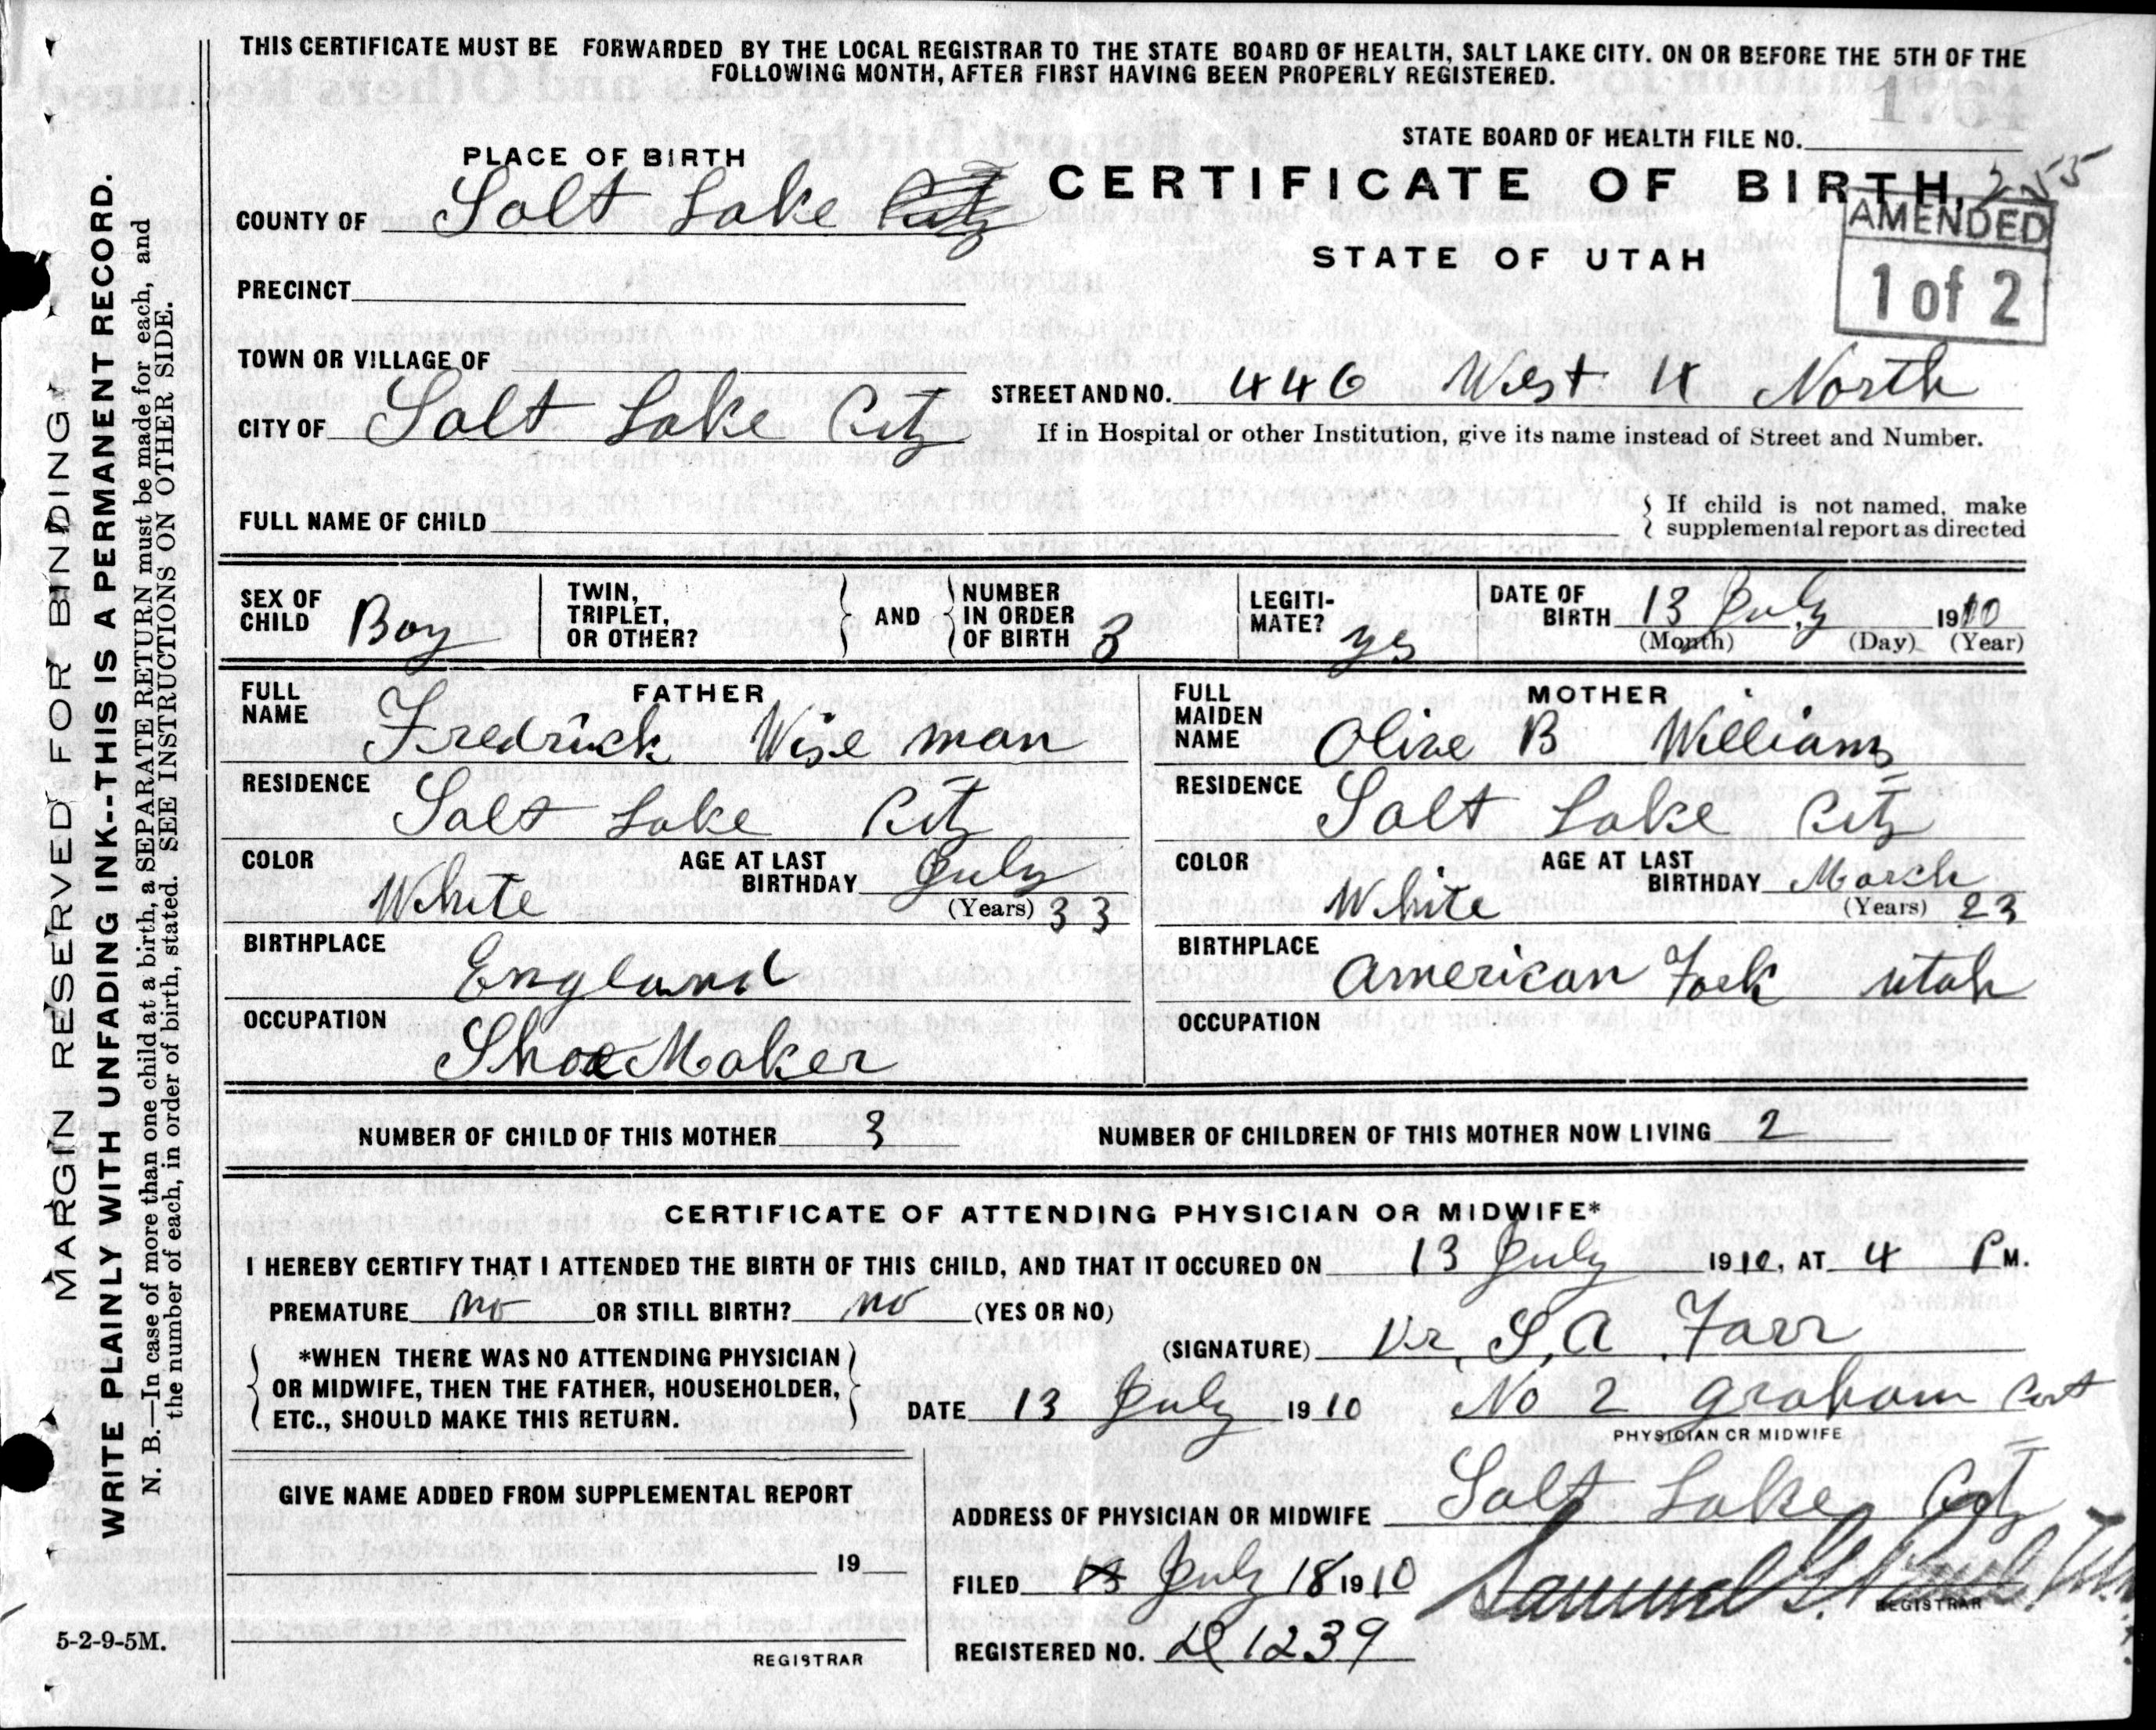 THIS CERTIFICATE MUST BE FORWARDED BY THE LOCAL REGISTRAR TO THE STATE BOARD OF HEALTH, SALT LAKE CITY. ON OR BEFORE THE 5TH OF THE
FOLLOWING MONTH, AFTER FIRST HAVING BEEN PROPERLY REGISTERED.
STATE BOARD OF HEALTH FILE NO.
PLACE OF BIRTH
CERTIFICATE OF BIRTH, 255
COUNTY OF Salt Lake City
AMENDED
1 of 2
STATE OF UTAH
PRECINCT
TOWN OR VILLAGE OF
STREET AND NO. 446 West 4 North
CITY OF Salt Lake City
If in Hospital or other Institution, give its name instead of Street and Number.
FULL NAME OF CHILD
If child is not named, make
supplemental report as directed
SEX OF CHILD Boy
TWIN, TRIPLET, OR OTHER?
AND
NUMBER IN ORDER OF BIRTH 3
LEGITI-MATE? yes
DATE OF BIRTH 13 July 1910
(Month) (Day) (Year)
FATHER
FULL NAME Fredrick Wise man
RESIDENCE Salt Lake City
COLOR White
AGE AT LAST BIRTHDAY July
(Years) 33
BIRTHPLACE England
OCCUPATION Shoe Maker
MOTHER
FULL MAIDEN NAME Olive B Williams
RESIDENCE Salt Lake City
COLOR White
AGE AT LAST BIRTHDAY March
(Years) 23
BIRTHPLACE American Fork utah
OCCUPATION
NUMBER OF CHILD OF THIS MOTHER 3
NUMBER OF CHILDREN OF THIS MOTHER NOW LIVING 2
CERTIFICATE OF ATTENDING PHYSICIAN OR MIDWIFE*
I HEREBY CERTIFY THAT I ATTENDED THE BIRTH OF THIS CHILD, AND THAT IT OCCURED ON 13 July 1910, AT 4 P M.
PREMATURE no OR STILL BIRTH? no (YES OR NO)
*WHEN THERE WAS NO ATTENDING PHYSICIAN
OR MIDWIFE, THEN THE FATHER, HOUSEHOLDER,
ETC., SHOULD MAKE THIS RETURN.
(SIGNATURE) Dr. S. A Farr
DATE 13 July 1910 No 2 graham Cort
PHYSICIAN OR MIDWIFE
ADDRESS OF PHYSICIAN OR MIDWIFE Salt Lake City
GIVE NAME ADDED FROM SUPPLEMENTAL REPORT
19
REGISTRAR
FILED July 18 1910 Samuel G.
REGISTRAR
REGISTERED NO. 1239
5-2-9-5M.
MARGIN RESERVED FOR BINDING.
WRITE PLAINLY WITH UNFADING INK--THIS IS A PERMANENT RECORD.
N. B.—In case of more than one child at a birth, a SEPARATE RETURN must be made for each, and
the number of each, in order of birth, stated. SEE INSTRUCTIONS ON OTHER SIDE.